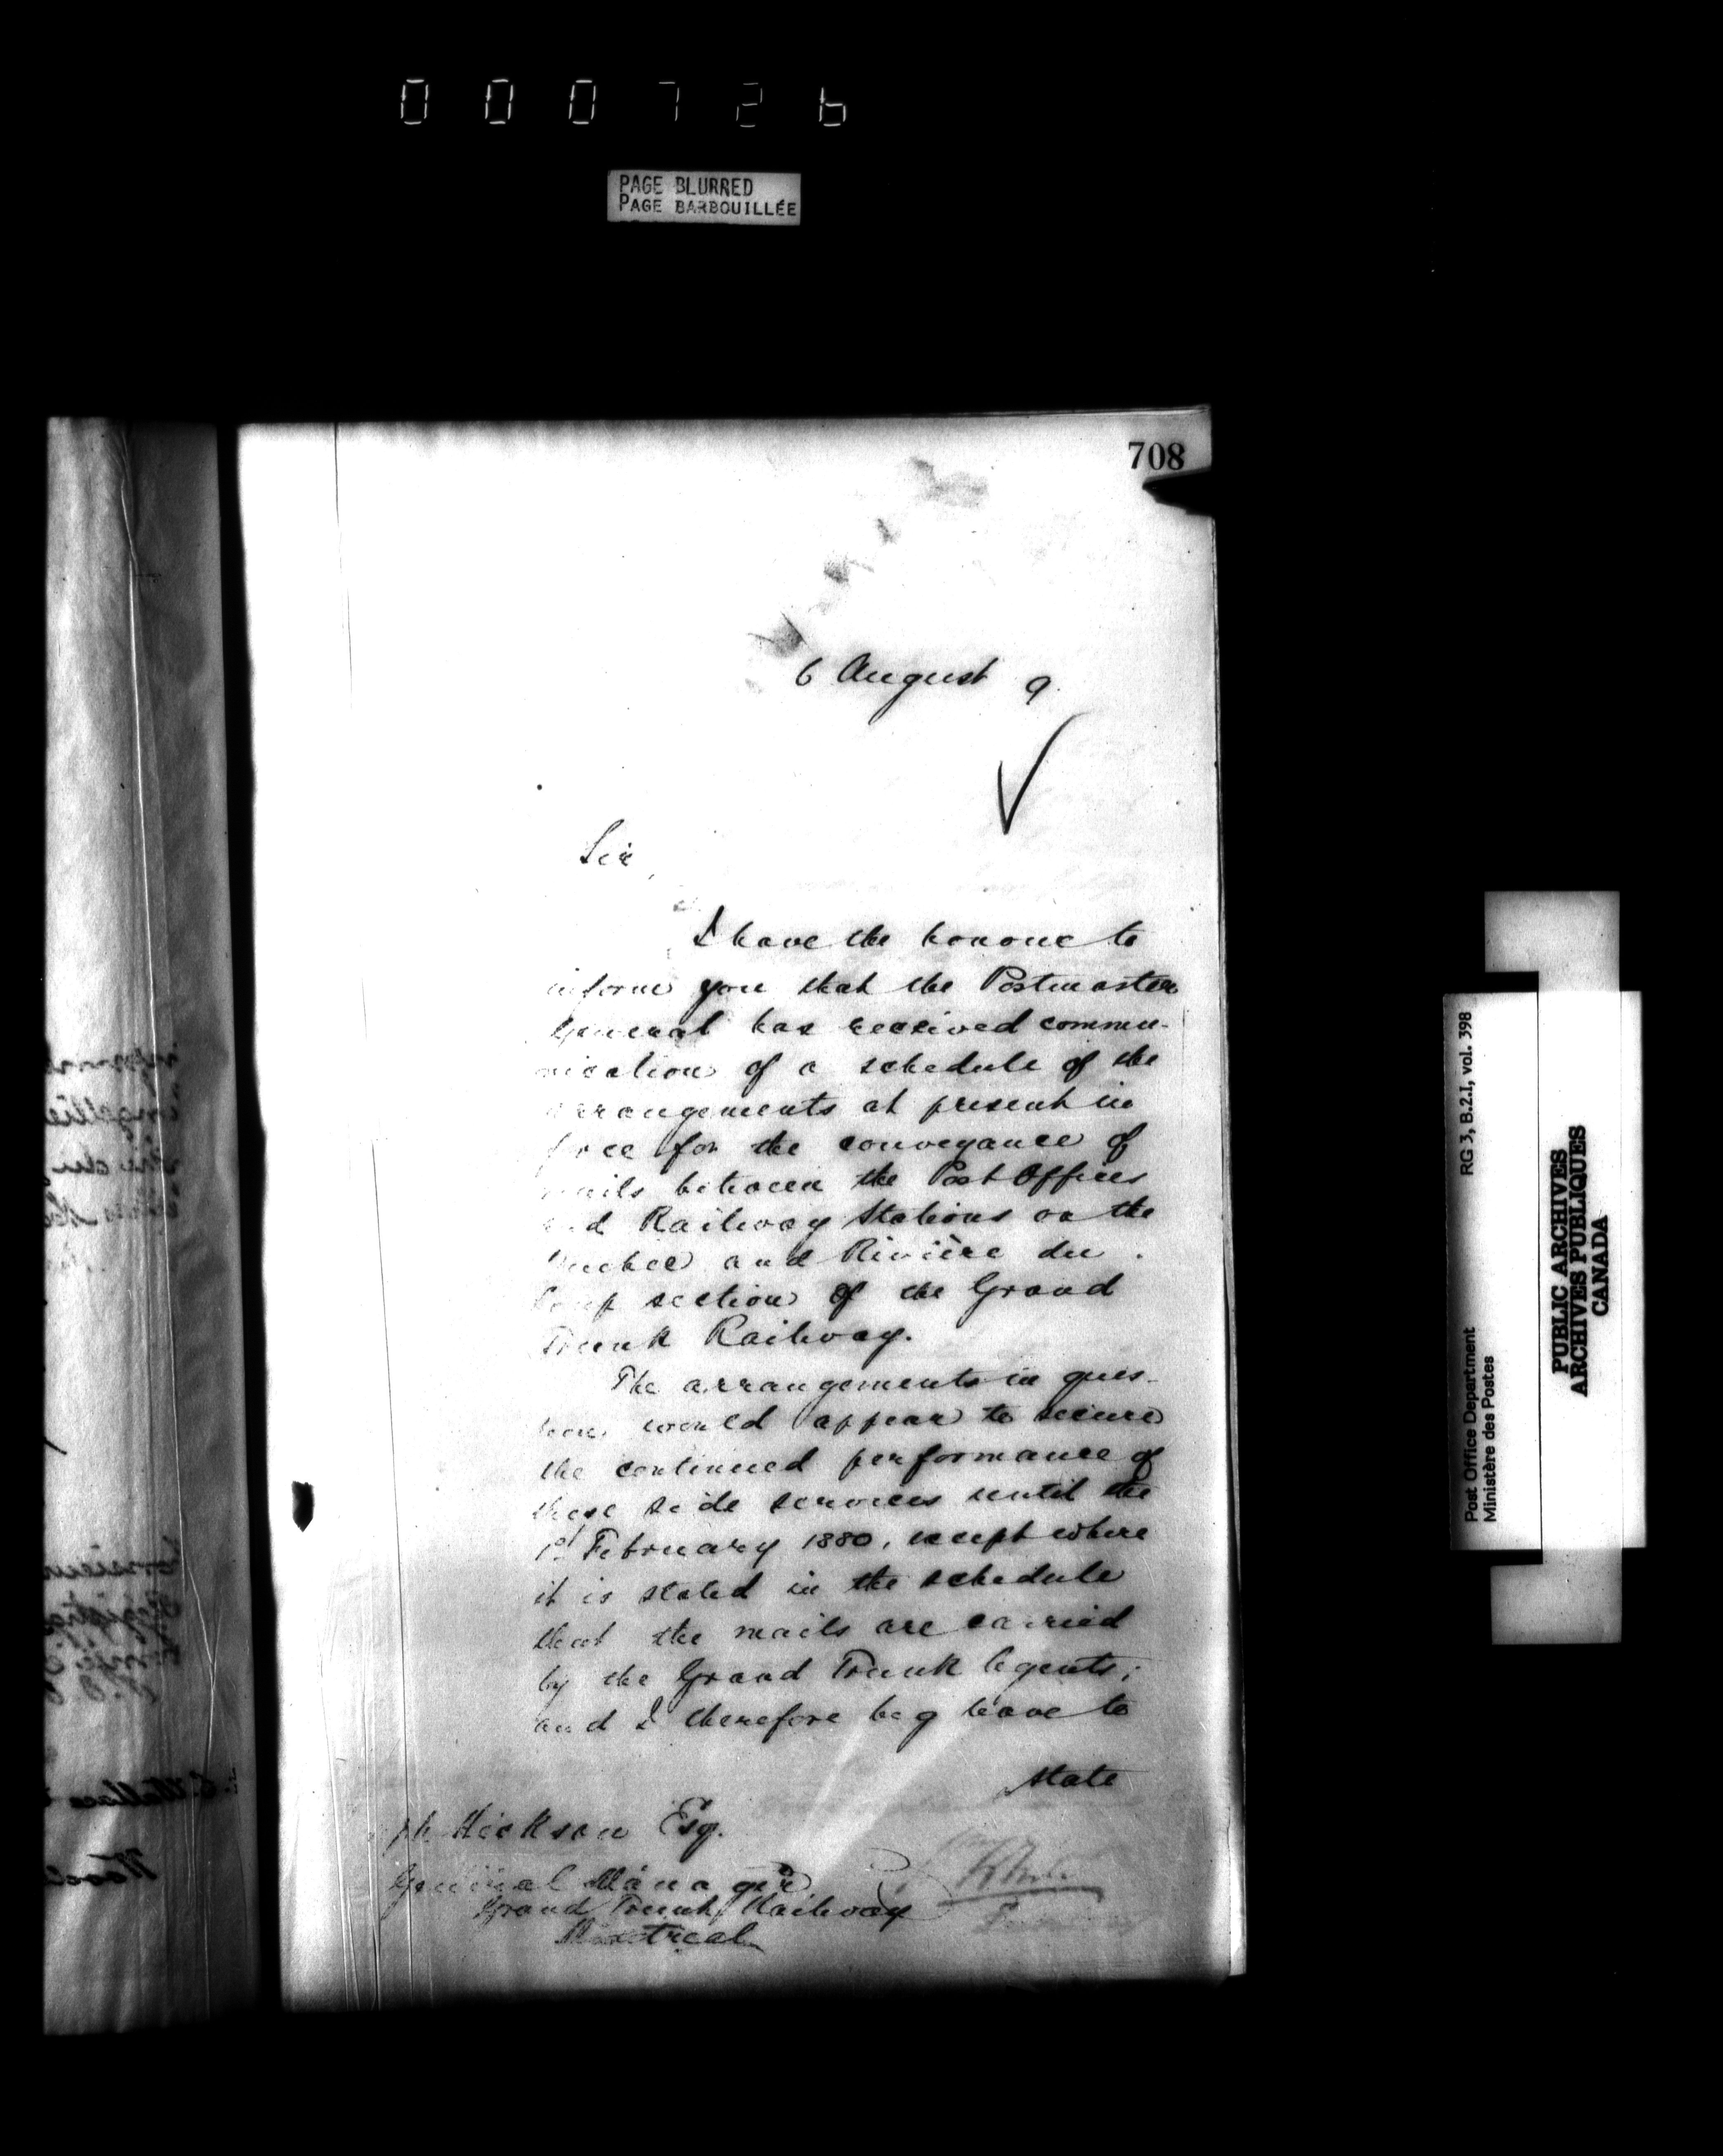 000726
PAGE BLURRED
PAGE BARBOUILLÉE
708
6 August 9.
Sir,
I have the honour to
inform you that the Postmaster
General has received commu-
nication of a schedule of the
arrangements at present in
force for the conveyance of
mails between the Post Offices
and Railway Stations on the
Quebec and Rivière du
Loup section of the Grand
Trunk Railway.
The arrangements in ques-
tion would appear to secure
the continued performance of
these side services until the
1st February 1880, except where
it is stated in the schedule
that the mails are carried
by the Grand Trunk Agents;
and I therefore beg leave to
state
Hickson Esq.
General Manager
Grand Trunk Railway
Montreal
RG 3, B.2.1, vol. 398
Post Office Department
Ministère des Postes
PUBLIC ARCHIVES
ARCHIVES PUBLIQUES
CANADA